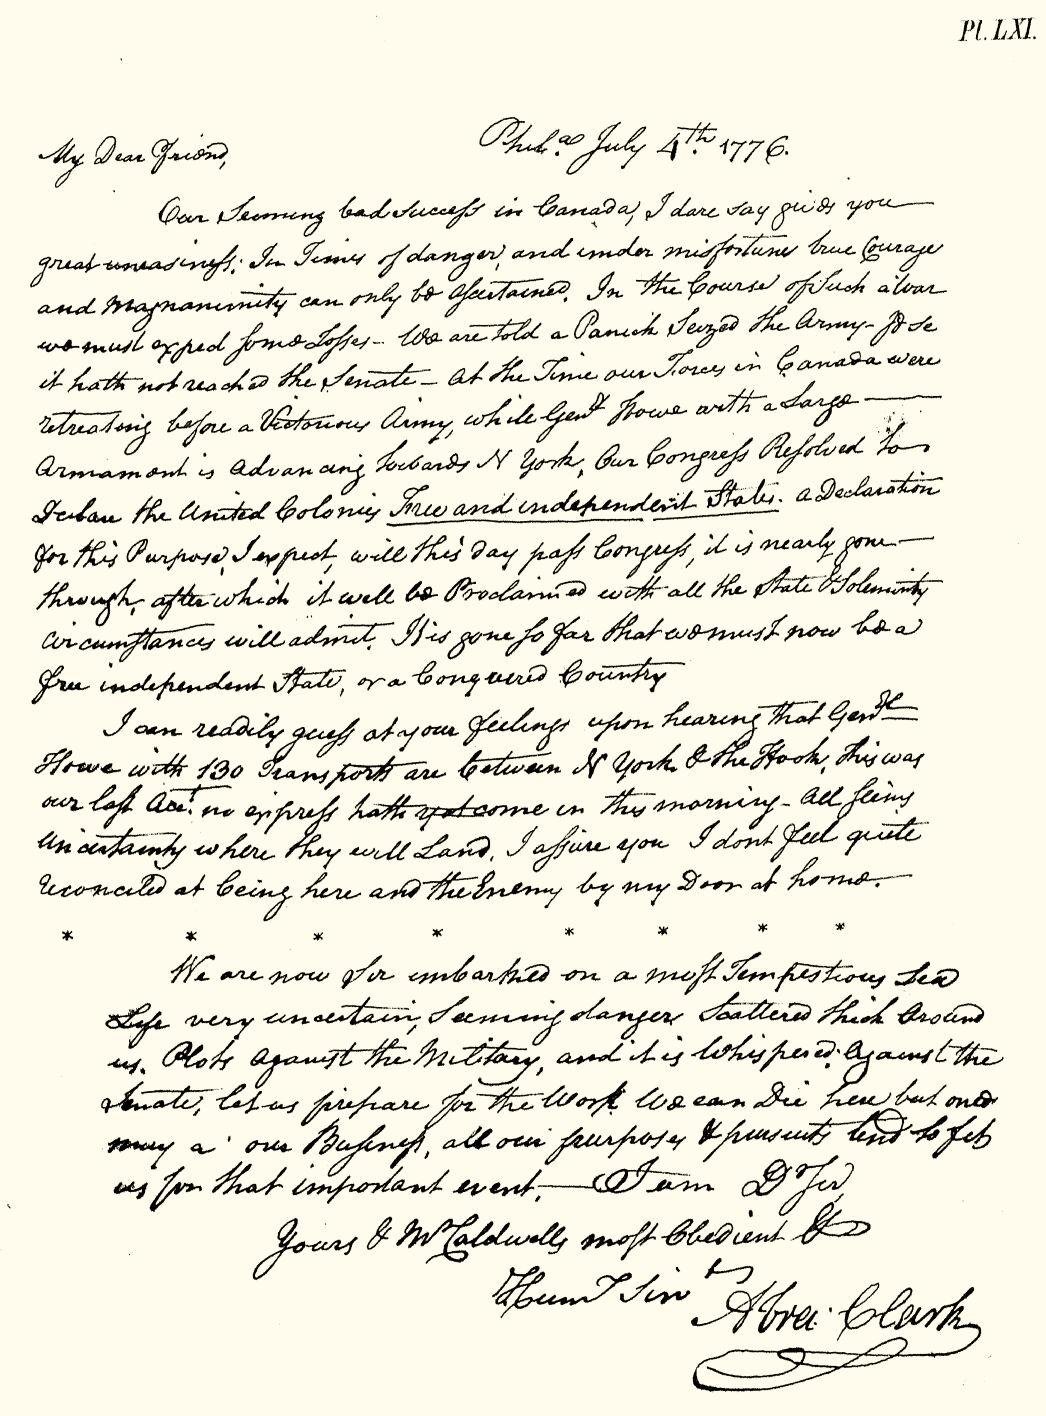 Pl. LXI.
Phila. July 4th. 1776.
My Dear Friend,
Our Seeming bad success in Canada, I dare say gives you
great uneasiness; In Times of danger, and under misfortunes true Courage
and Magnanimity can only be Ascertained. In the Course of Such a War
we must expect some Losses – We are told a Panick Seized the Army – If so
it hath not reached the Senate – At the Time our Forces in Canada were
retreating before a Victorious Army, while Genl. Howe with a Large
Armament is Advancing towards N York, Our Congress Resolved to
Declare the United Colonies Free and independent States. A Declaration
for this Purpose, I expect, will this day pass Congress, it is nearly gone
through, after which it will be Proclaimed with all the State & Solemnity
Circumstances will admit. It is gone so far that we must now be a
free independent State, or a Conquered Country
I can readily guess at your feelings upon hearing that Genll.
Howe with 130 Transports are between N York & the Hook, this was
our last Acct. no express hath yet come in this morning – All seems
Uncertainty where they will Land. I assure you I dont feel quite
reconciled at being here and the Enemy by my Door at home.
* * * * * * * *
We are now Sir embarked on a most Tempestious Sea
Life very uncertain, Seeming dangers Scattered thick Around
us. Plots Against the Military, and it is Whispered; Against the
Senate, let us prepare for the Worst. We can Die here but once
may a' our Business, all our purposes & pursuits tend to fit
us for that important event, — I am Dr Sir
Yours & Mr Caldwells most Obedient &
Humb Servt
Abra: Clark